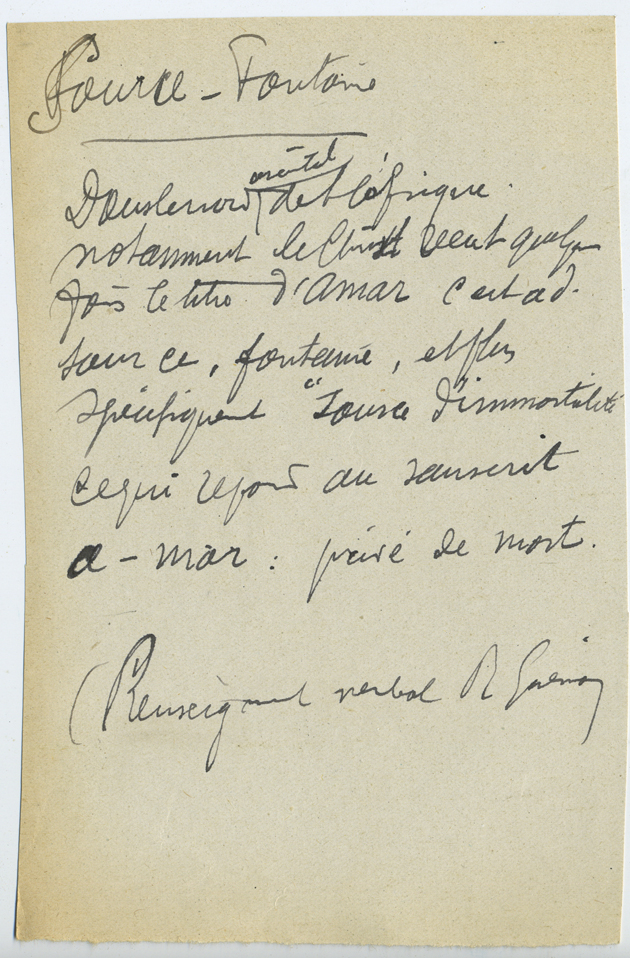 Source - Fontaine
oriental
Dans le nord de l'Afrique.
notamment le Christ reçut quelque
fois le titre d'Amar c'est a d.
source, fontaine, et plus
spécifiquement "source d'immortalité
ce qui répond au sanscrit
a - mar : privé de mort.
(Renseignement verbal R Guénon)